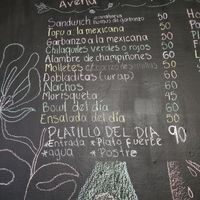 Avena
Sandwich zanahoria 50
humus de garbanzo
Tofu a la mexicana 50
Garbanzo a la mexicana 50
Chilaquiles verdes o rojos 50
Alambre de champiñones 60
Molletes 50
Dobladitas (wrap) 50
Nachos 60
Morisqueta 45
Bowl del día 60
Ensalada del día 50
PLATILLO DEL DIA 90
*Entrada *Plato fuerte
*agua *Postre